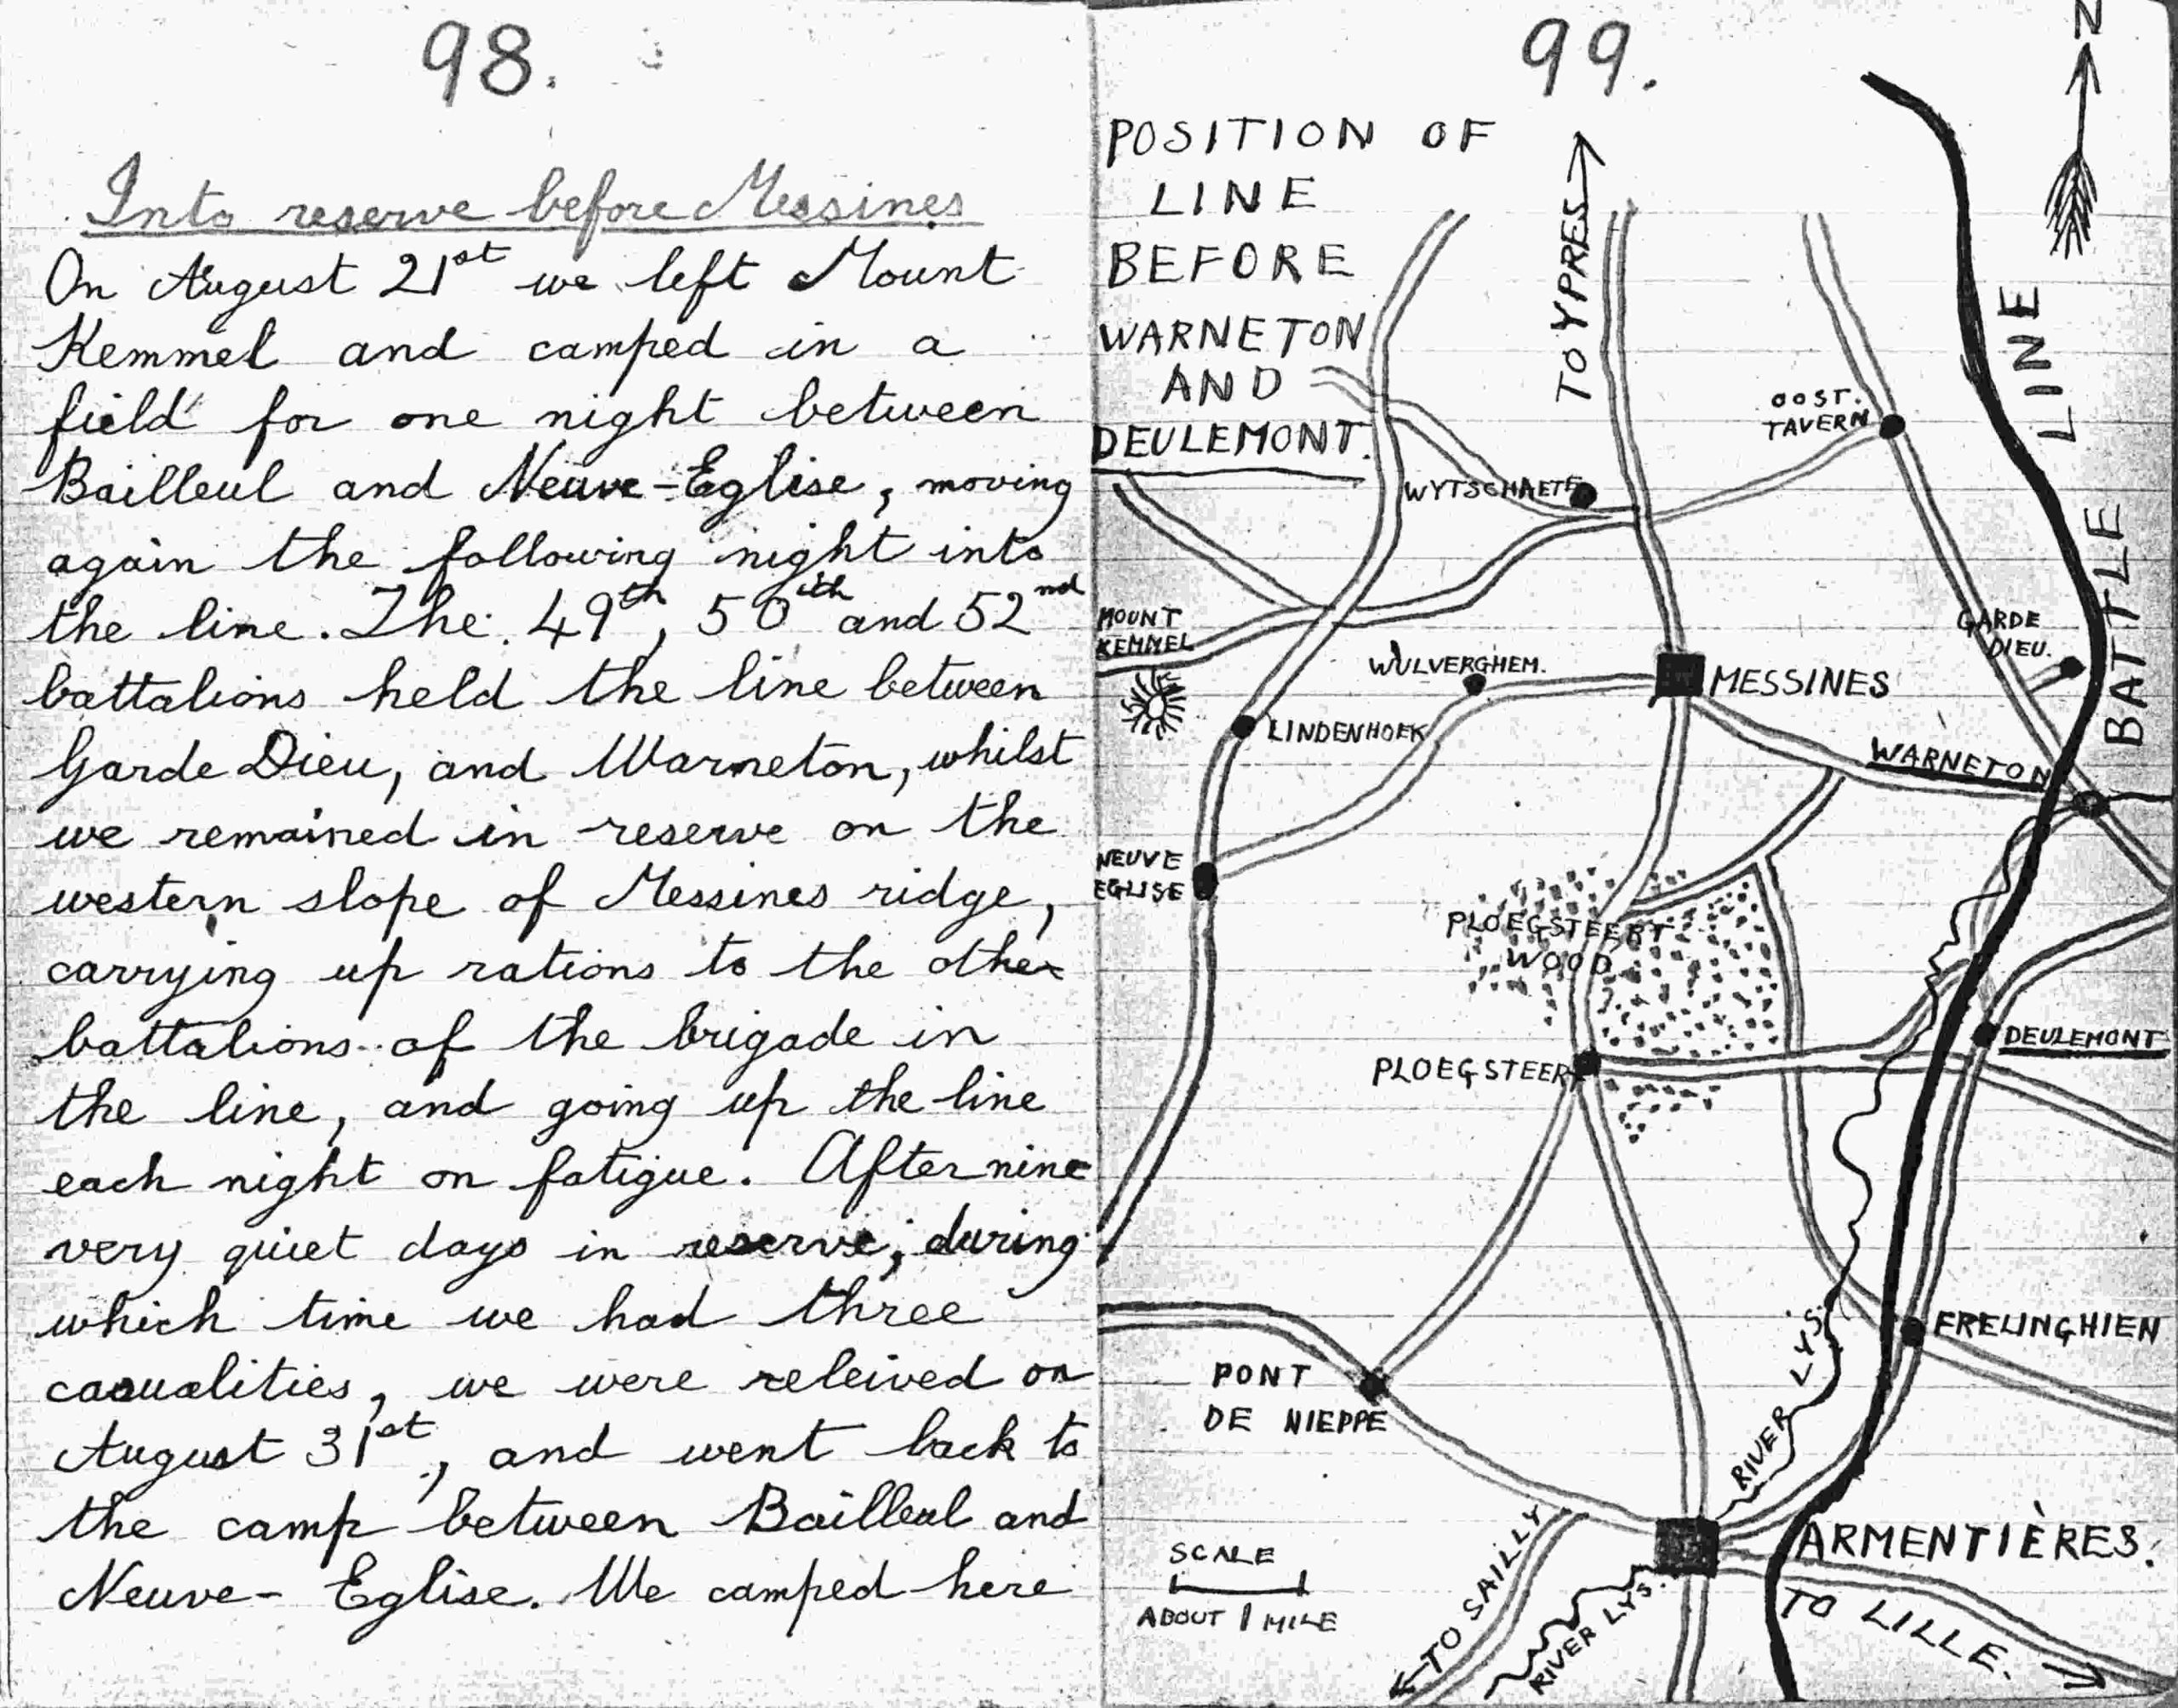 98.
Into reserve before Messines
On August 21st we left Mount
Kemmel and camped in a
field for one night between
Bailleul and Neuve-Eglise, moving
again the following night into
the line. The 49th, 50th and 52nd
battalions held the line between
Garde Dieu, and Warneton, whilst
we remained in reserve on the
western slope of Messines ridge,
carrying up rations to the other
battalions of the brigade in
the line, and going up the line
each night on fatigue. After nine
very quiet days in reserve, during
which time we had three
casualities, we were releived on
August 31st, and went back to
the camp between Bailleul and
Neuve-Eglise. We camped here
99.
N
POSITION OF
LINE
BEFORE
WARNETON
AND
DEULEMONT.
TO YPRES
BATTLE LINE
OOST.
TAVERN
WYTSCHAETE
MOUNT
KEMMEL
GARDE
DIEU.
WULVERGHEM.
MESSINES
LINDENHOEK
WARNETON
NEUVE
EGLISE
PLOEGSTEERT
WOOD
DEULEMONT
PLOEGSTEERT
FRELINGHIEN
PONT
DE NIEPPE
RIVER LYS.
ARMENTIÈRES.
SCALE
ABOUT 1 MILE
TO SAILLY
RIVER LYS.
TO LILLE.